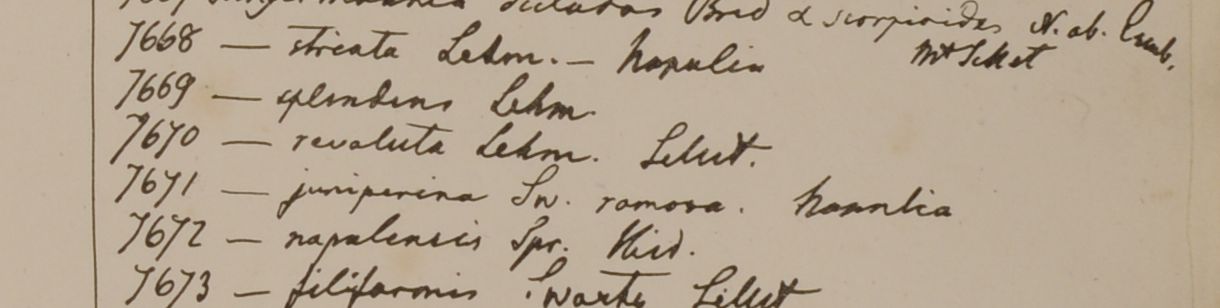 7667 Jungermannia Bred & scorpioides N. ab. Esenb.
Mt Silhet
7668 — striata Lehm. — Napalia
7669 — splendens Lehm.
7670 — revoluta Lehm. Silhet.
7671 — juniperina Sw. ramosa. Napalia
7672 — napalensis Spr. Ibid.
7673 — filiformis Swartz Silhet